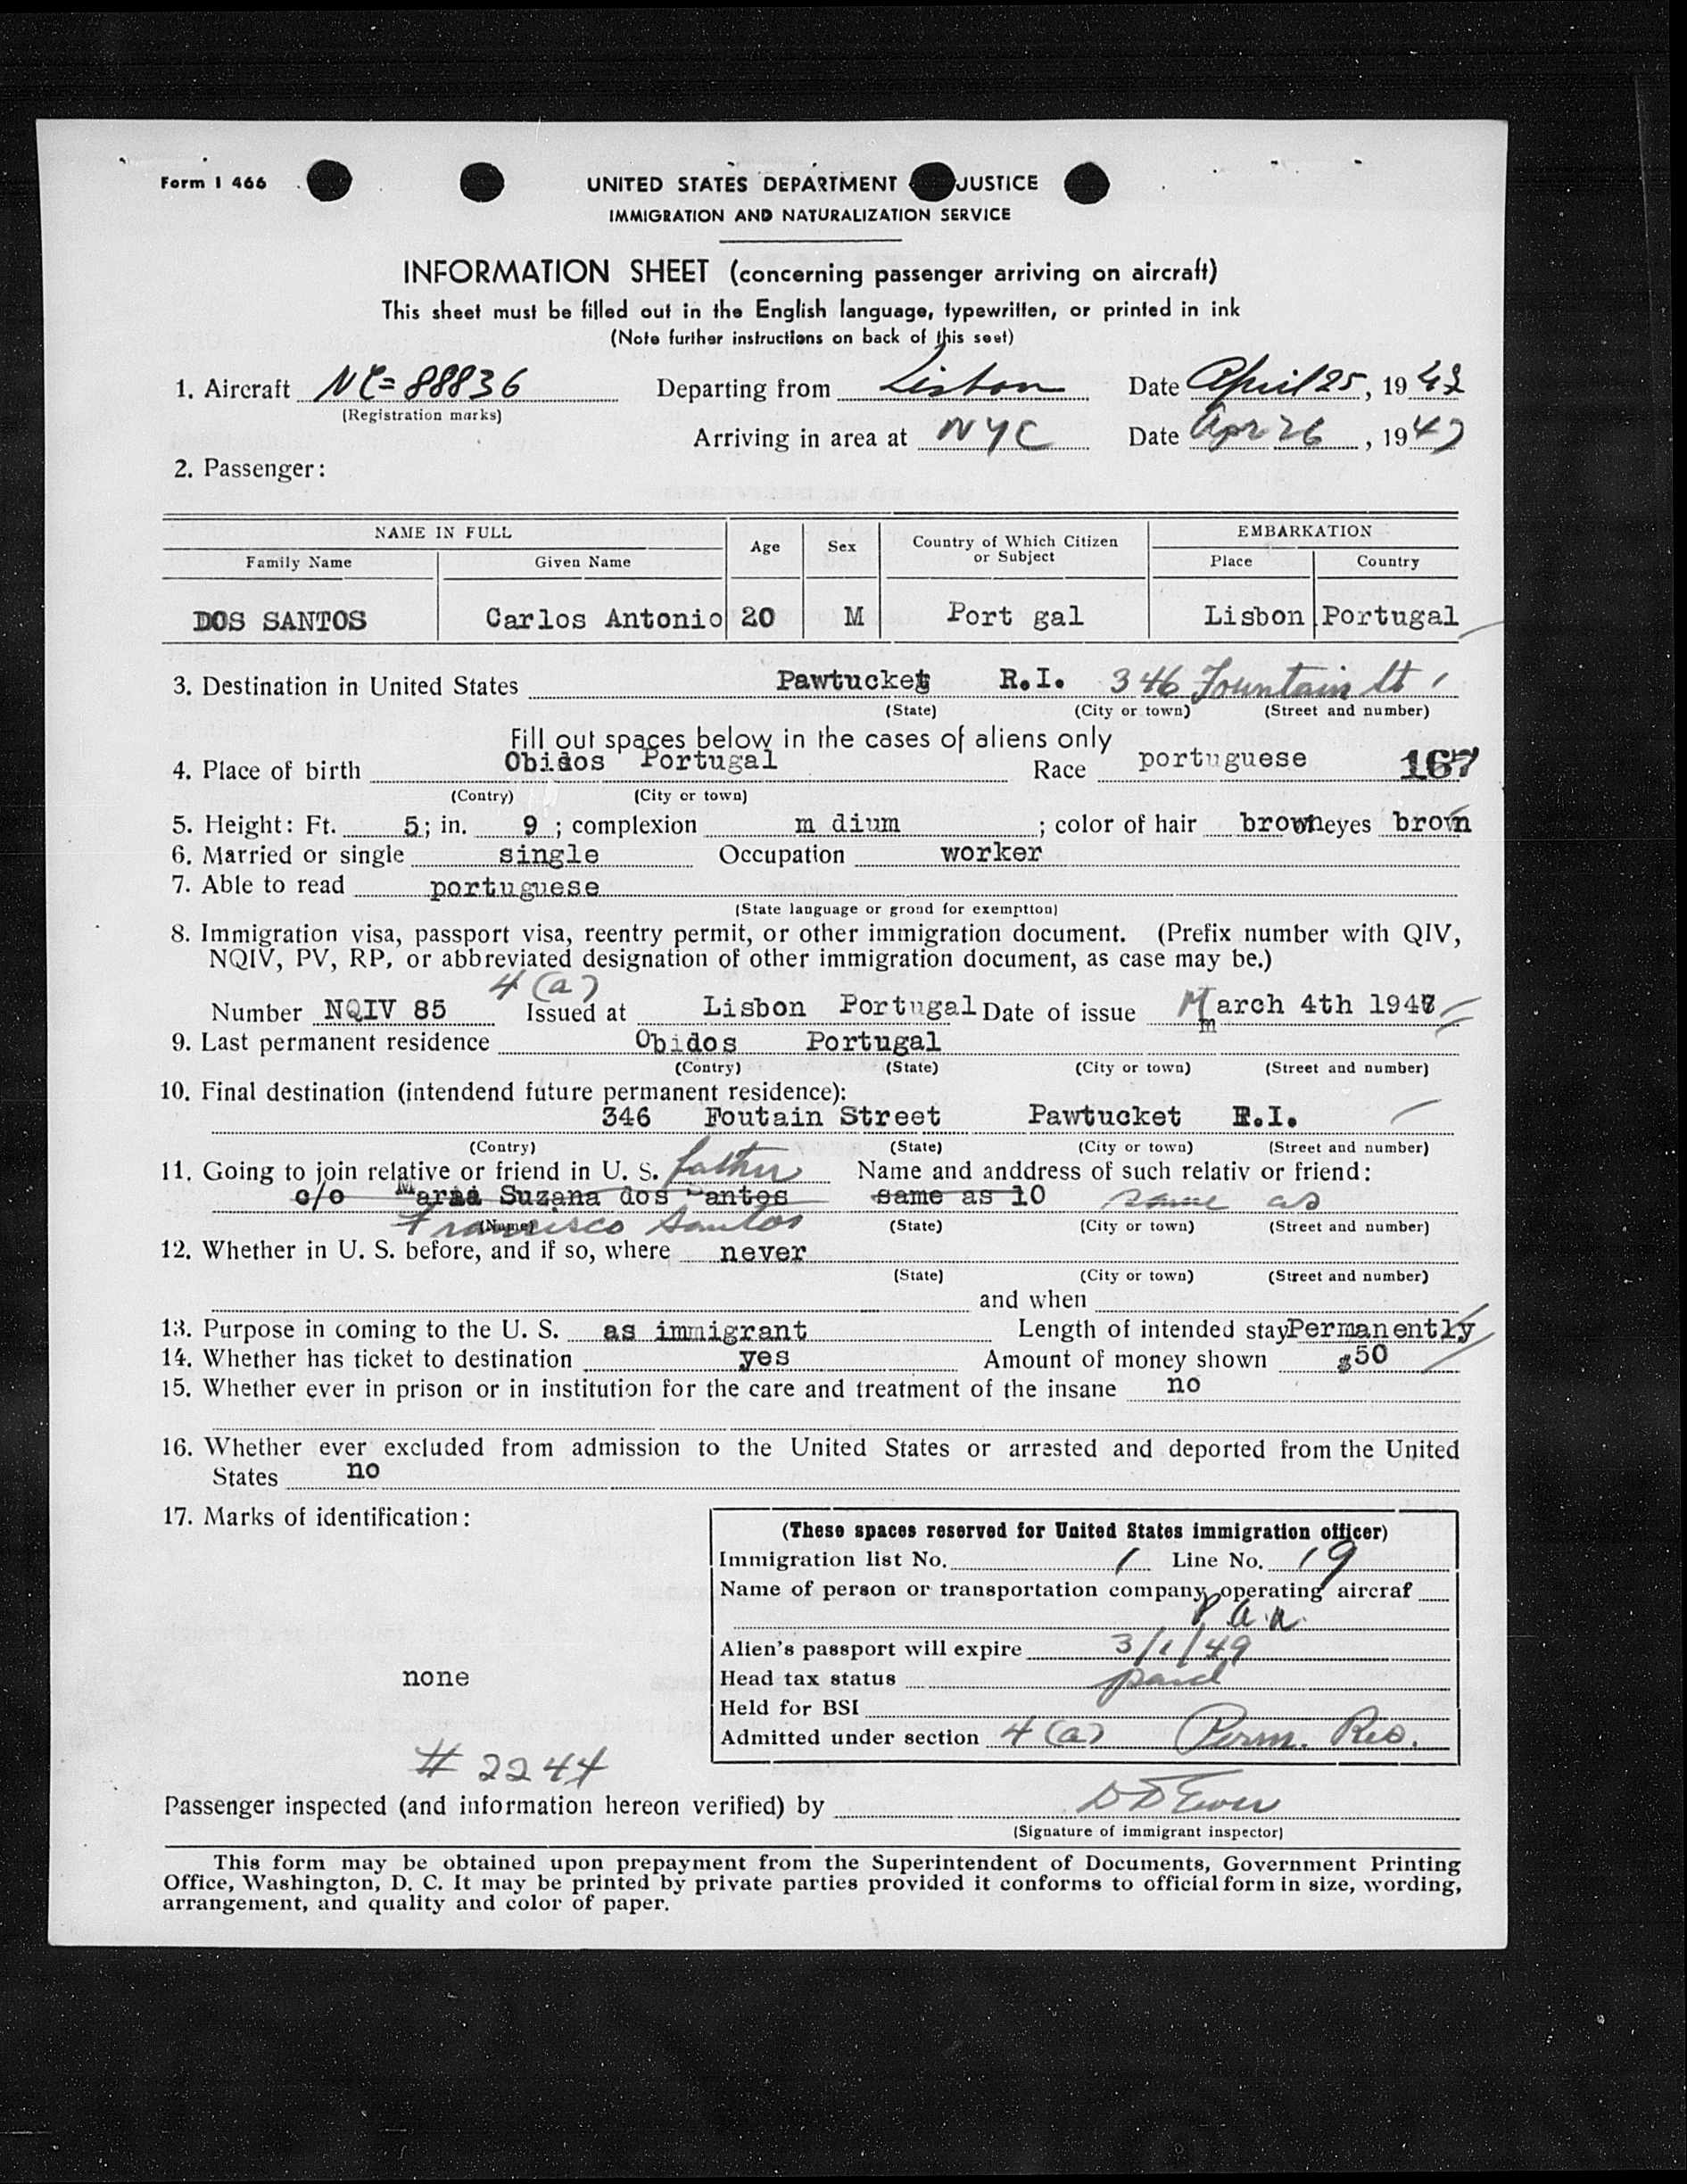 Form I 466
UNITED STATES DEPARTMENT JUSTICE
IMMIGRATION AND NATURALIZATION SERVICE
INFORMATION SHEET (concerning passenger arriving on aircraft)
This sheet must be filled out in the English language, typewritten, or printed in ink
(Note further instructions on back of this seet)
1. Aircraft NC=88836 Departing from Lisbon Date April 25, 19
(Registration marks)
Arriving in area at NYC Date Apr 26, 1947
2. Passenger:
NAME IN FULL Age Sex Country of Which Citizen or Subject EMBARKATION
Family Name Given Name Place Country
DOS SANTOS Carlos Antonio 20 M Port gal Lisbon Portugal
3. Destination in United States Pawtucket R.I. 346 Fountain St
(State) (City or town) (Street and number)
Fill out spaces below in the cases of aliens only
4. Place of birth Obidos Portugal Race portuguese 167
(Contry) (City or town)
5. Height: Ft. 5; in. 9; complexion m dium; color of hair brown eyes brown
6. Married or single single Occupation worker
7. Able to read portuguese
(State language or groud for exemption)
8. Immigration visa, passport visa, reentry permit, or other immigration document. (Prefix number with QIV,
NQIV, PV, RP, or abbreviated designation of other immigration document, as case may be.)
4(a)
Number NQIV 85 Issued at Lisbon Portugal Date of issue March 4th 1947
9. Last permanent residence Obidos Portugal
(Contry) (State) (City or town) (Street and number)
10. Final destination (intendend future permanent residence):
346 Foutain Street Pawtucket R.I.
(Contry) (State) (City or town) (Street and number)
11. Going to join relative or friend in U. S. father Name and anddress of such relativ or friend:
c/o Maria Suzana dos Santos same as 10 same as
Francisco Santos
(Name) (State) (City or town) (Street and number)
12. Whether in U. S. before, and if so, where never
(State) (City or town) (Street and number)
and when
13. Purpose in coming to the U. S. as immigrant Length of intended stay Permanently
14. Whether has ticket to destination yes Amount of money shown $50
15. Whether ever in prison or in institution for the care and treatment of the insane no
16. Whether ever excluded from admission to the United States or arrested and deported from the United
States no
17. Marks of identification:
none
# 2244
(These spaces reserved for United States immigration officer)
Immigration list No. 1 Line No. 19
Name of person or transportation company operating aircraf
P a a
Alien's passport will expire 3/1/49
Head tax status paid
Held for BSI
Admitted under section 4(a) Perm. Res.
Passenger inspected (and information hereon verified) by
(Signature of immigrant inspector)
This form may be obtained upon prepayment from the Superintendent of Documents, Government Printing
Office, Washington, D. C. It may be printed by private parties provided it conforms to official form in size, wording,
arrangement, and quality and color of paper.